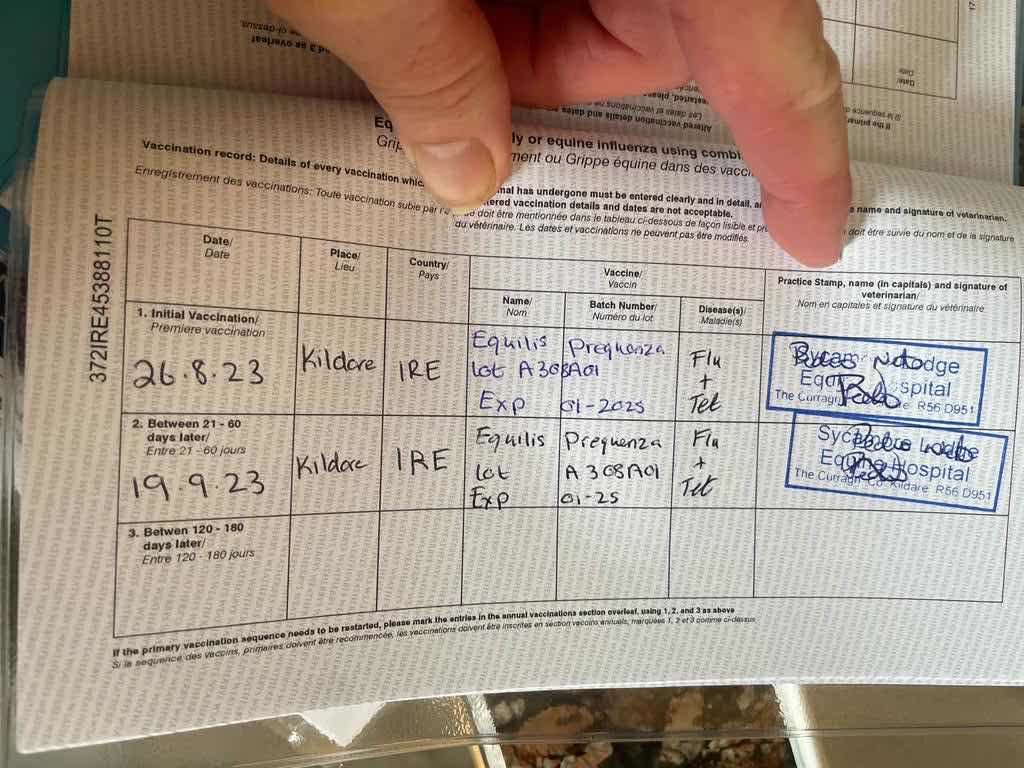 Eq
ly or equine influenza using combi
Grip
ment ou Grippe équine dans des vacc
Vaccination record: Details of every vaccination whic
mal has undergone must be entered clearly and in detail, a
name and signature of veterinarian.
tered vaccination details and dates are not acceptable.
Enregistrement des vaccinations: Toute vaccination subie par l'é
doit être mentionnée dans le tableau ci-dessous de façon lisible et pr
doit être suivie du nom et de la signature
du vétérinaire. Les dates et vaccinations ne peuvent pas être modifiés.
372IRE45388110T
Date/
Date
Place/
Lieu
Country/
Pays
Vaccine/
Vaccin
Name/
Nom
Batch Number/
Numéro du lot
Disease(s)/
Maladie(s)
Practice Stamp, name (in capitals) and signature of
veterinarian/
Nom en capitales et signature du vétérinaire
1. Initial Vaccination/
Premiere vaccination
26.8.23
Kildare
IRE
Equilis Prequenza
lot A308A01
Exp 01-2025
Flu
+
Tet
Lodge
Equ spital
The Curragh R56 D951
2. Between 21 - 60
days later/
Entre 21 - 60 jours
19.9.23
Kildare
IRE
Equilis Prequenza
lot A308A01
Exp 01-25
Flu
+
Tet
Syc
Equine Hospital
The Curragh Co. Kildare R56 D951
3. Betwen 120 - 180
days later/
Entre 120 - 180 jours
If the primary vaccination sequence needs to be restarted, please mark the entries in the annual vaccinations section overleaf, using 1, 2, and 3 as above
Si la sequence des vaccins, primaires doivent être recommencée, les vaccinations doivent être inscrites en section vaccins annuels, marquées 1, 2 et 3 comme ci-dessus